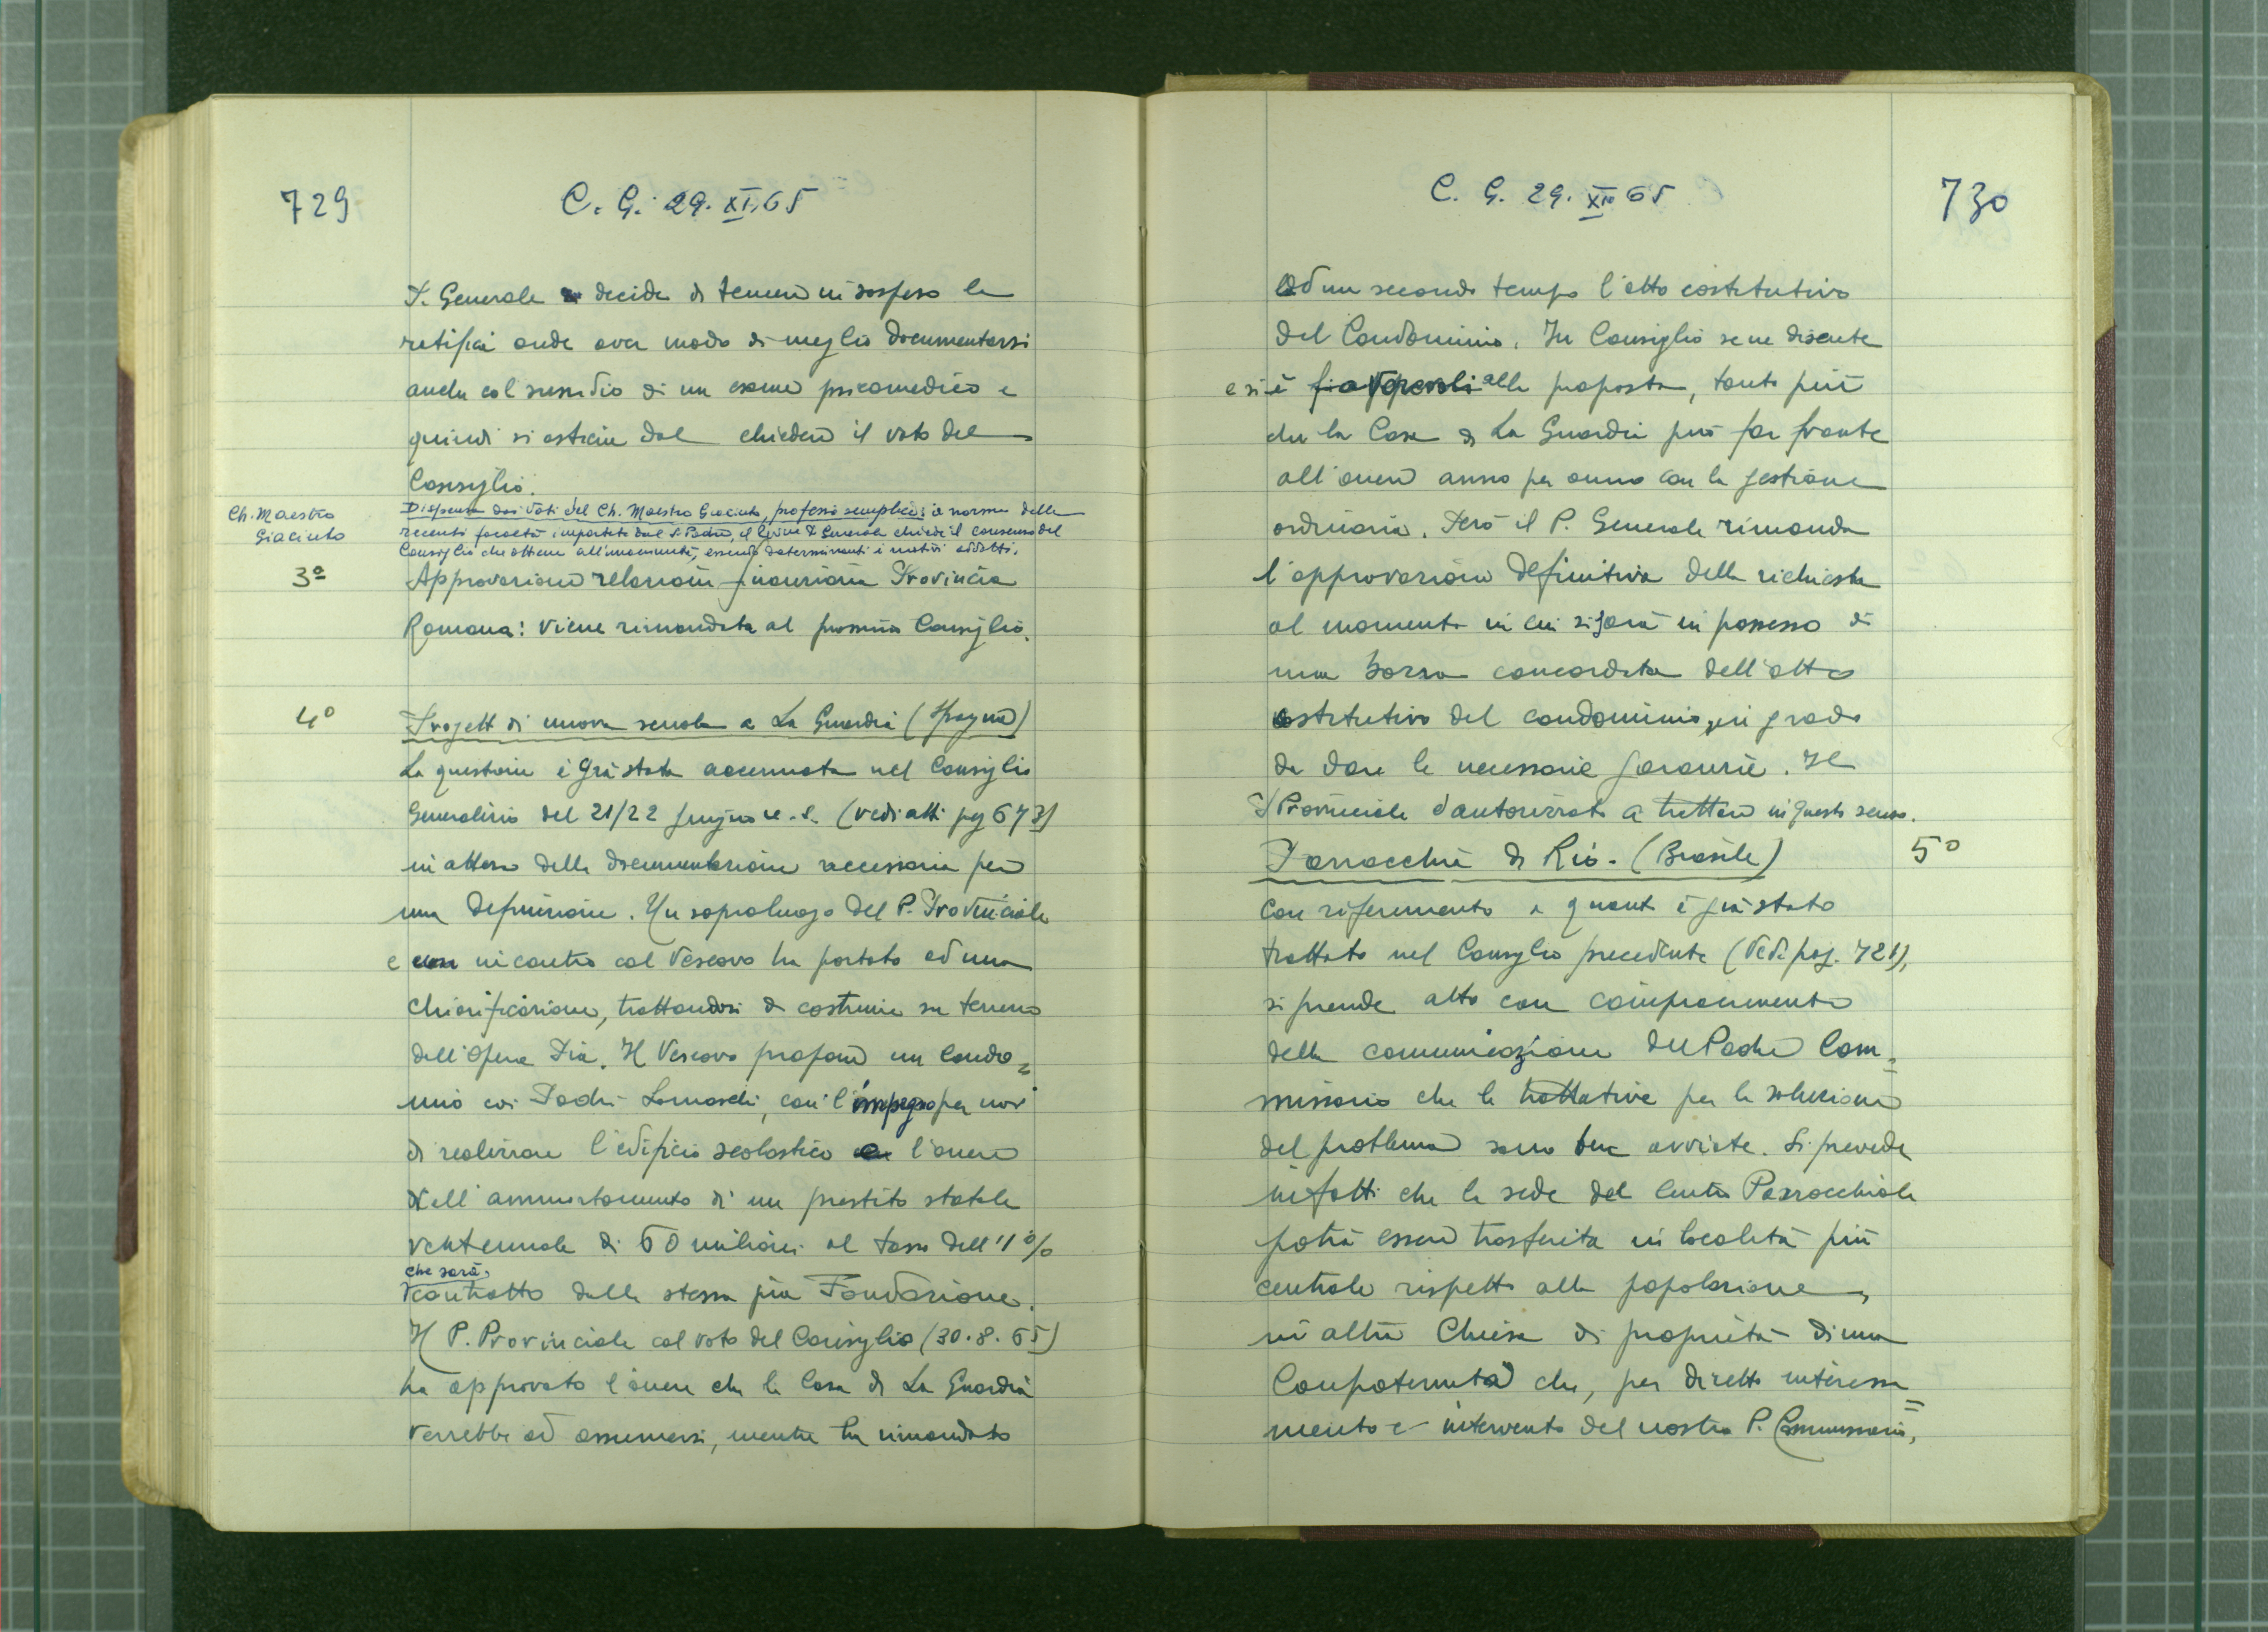 729
C. G. 29. XI. 65
P. Generale decide di tenere in sospeso la
ratifica onde aver modo di meglio documentarsi
anche col sussidio di un esame psicomedico e
quindi si astiene dal chiedere il voto del
Consiglio.
Ch. Maestro
Giacinto
Dispensa dai Voti del Ch. Maestro Giacinto, professo semplice: a norma delle
recenti facoltà impartite dal S. Padre, il Rev.mo P. Generale chiede il consenso del
Consiglio che ottiene all'unanimità, essendo determinanti i motivi addotti.
3º
Approvazione relazione finanziaria Provincia
Romana: viene rimandata al prossimo Consiglio.
4º
Progetto di nuova scuola a La Guardia (Spagna)
La questione è già stata accennata nel Consiglio
Generalizio del 21/22 giugno u.s. (vedi atti pg 673)
in attesa della documentazione necessaria per
una definizione. Un sopraluogo del P. Provinciale
e un incontro col Vescovo ha portato ad una
chiarificazione, trattandosi di costruire su terreno
dell'Opera Pia. Il Vescovo propone un Condo=
minio coi Padri Somaschi, con l'impegno per noi
di realizzare l'edificio scolastico e l'onere
dell'ammortamento di un prestito statale
ventennale di 60 milioni al tasso dell'1%
che sarà
contratto dalla stessa pia Fondazione.
Il P. Provinciale col voto del Consiglio (30.8.65)
ha approvato l'onere che la Casa di La Guardia
verrebbe ad assumersi, mentre ha rimandato
C. G. 29. XI. 65
730
ad un secondo tempo l'atto costitutivo
del Condominio. In Consiglio se ne discute
e si è favorevoli alla proposta, tanto più
che la Casa di La Guardia può far fronte
all'onere anno per anno con la gestione
ordinaria. Però il P. Generale rimanda
l'approvazione definitiva della richiesta
al momento in cui si sarà in possesso di
una bozza concordata dell'atto
costitutivo del condominio, in grado
da dare le necessarie garanzie. Il
P. Provinciale è autorizzato a trattare in questo senso.
5º
Parrocchia di Rio. (Brasile)
Con riferimento a quanto è già stato
trattato nel Consiglio precedente (Vedi pag. 721),
si prende atto con compiacimento
della comunicazione del Padre Com=
missario che le trattative per la soluzione
del problema sono ben avviate. Si prevede
infatti che la sede del Centro Parrocchiale
potrà essere trasferita in località più
centrale rispetto alla popolazione,
in altra Chiesa di proprietà di una
Confraternita che, per diretto interessa=
mento e intervento del nostro P. Commissario,